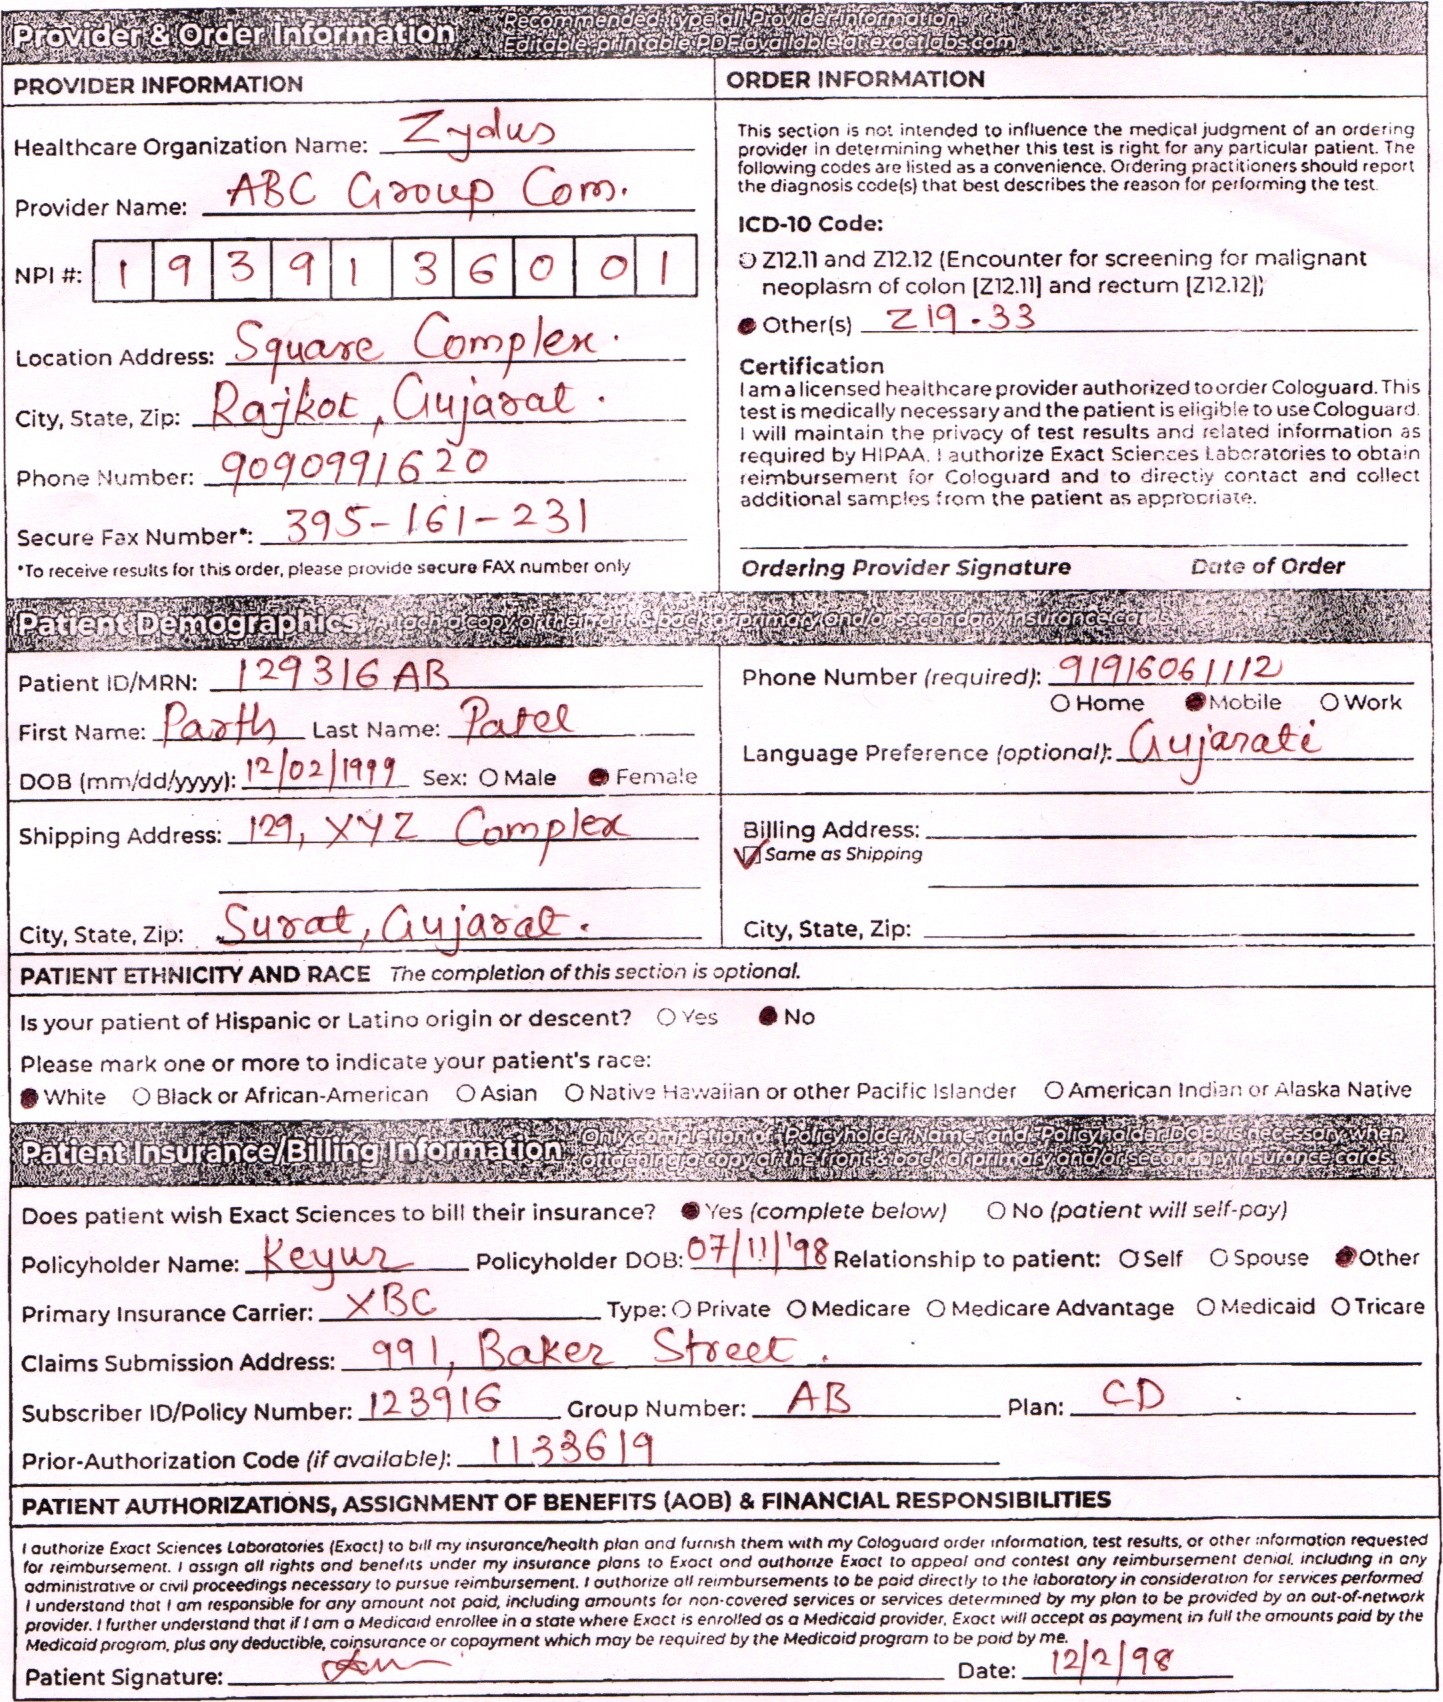 Provider & Order Information
Recommended: type all Provider Information.
Editable-printable PDF available at exactlabs.com
PROVIDER INFORMATION
Healthcare Organization Name: Zydus
Provider Name: ABC Group Com.
NPI #: 1 9 3 9 1 3 6 0 0 1
Location Address: Square Complex.
City, State, Zip: Rajkot, Gujarat.
Phone Number: 9090991620
Secure Fax Number*: 395-161-231
*To receive results for this order, please provide secure FAX number only
ORDER INFORMATION
This section is not intended to influence the medical judgment of an ordering
provider in determining whether this test is right for any particular patient. The
following codes are listed as a convenience. Ordering practitioners should report
the diagnosis code(s) that best describes the reason for performing the test.
ICD-10 Code:
Z12.11 and Z12.12 (Encounter for screening for malignant
neoplasm of colon [Z12.11] and rectum [Z12.12])
Other(s) Z19.33
Certification
I am a licensed healthcare provider authorized to order Cologuard. This
test is medically necessary and the patient is eligible to use Cologuard.
I will maintain the privacy of test results and related information as
required by HIPAA. I authorize Exact Sciences Laboratories to obtain
reimbursement for Cologuard and to directly contact and collect
additional samples from the patient as appropriate.
Ordering Provider Signature Date of Order
Patient Demographics Attach a copy of the front & back of primary and/or secondary insurance cards.
Patient ID/MRN: 129316 AB
First Name: Parth Last Name: Patel
DOB (mm/dd/yyyy): 12/02/1999 Sex: Male Female
Phone Number (required): 91916061112
Home Mobile Work
Language Preference (optional): Gujarati
Shipping Address: 129, XYZ Complex
City, State, Zip: Surat, Gujarat.
Billing Address:
Same as Shipping
City, State, Zip:
PATIENT ETHNICITY AND RACE The completion of this section is optional.
Is your patient of Hispanic or Latino origin or descent? Yes No
Please mark one or more to indicate your patient's race:
White Black or African-American Asian Native Hawaiian or other Pacific Islander American Indian or Alaska Native
Patient Insurance/Billing Information
Only completion of Policyholder Name and Policyholder DOB is necessary when
attaching a copy of the front & back of primary and/or secondary insurance cards.
Does patient wish Exact Sciences to bill their insurance? Yes (complete below) No (patient will self-pay)
Policyholder Name: Keyur Policyholder DOB: 07/11/'98 Relationship to patient: Self Spouse Other
Primary Insurance Carrier: XBC Type: Private Medicare Medicare Advantage Medicaid Tricare
Claims Submission Address: 991, Baker Street.
Subscriber ID/Policy Number: 123916 Group Number: AB Plan: CD
Prior-Authorization Code (if available): 1133619
PATIENT AUTHORIZATIONS, ASSIGNMENT OF BENEFITS (AOB) & FINANCIAL RESPONSIBILITIES
I authorize Exact Sciences Laboratories (Exact) to bill my insurance/health plan and furnish them with my Cologuard order information, test results, or other information requested
for reimbursement. I assign all rights and benefits under my insurance plans to Exact and authorize Exact to appeal and contest any reimbursement denial, including in any
administrative or civil proceedings necessary to pursue reimbursement. I authorize all reimbursements to be paid directly to the laboratory in consideration for services performed.
I understand that I am responsible for any amount not paid, including amounts for non-covered services or services determined by my plan to be provided by an out-of-network
provider. I further understand that if I am a Medicaid enrollee in a state where Exact is enrolled as a Medicaid provider, Exact will accept as payment in full the amounts paid by the
Medicaid program, plus any deductible, coinsurance or copayment which may be required by the Medicaid program to be paid by me.
Patient Signature: Date: 12/2/98